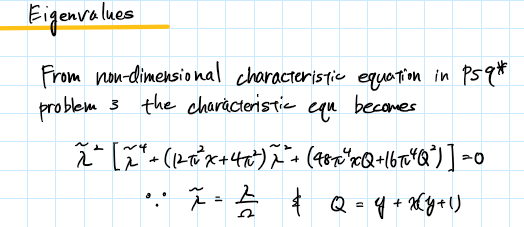 Eigenvalues
From non-dimensional characteristic equation in PS9*
problem 3 the characteristic eqn becomes
λ̃² [λ̃⁴ + (12π²x + 4π²) λ̃² + (48π⁴xQ + 16π⁴Q²)] = 0
∵ λ̃ = λ/Ω & Q = y + x(y+1)